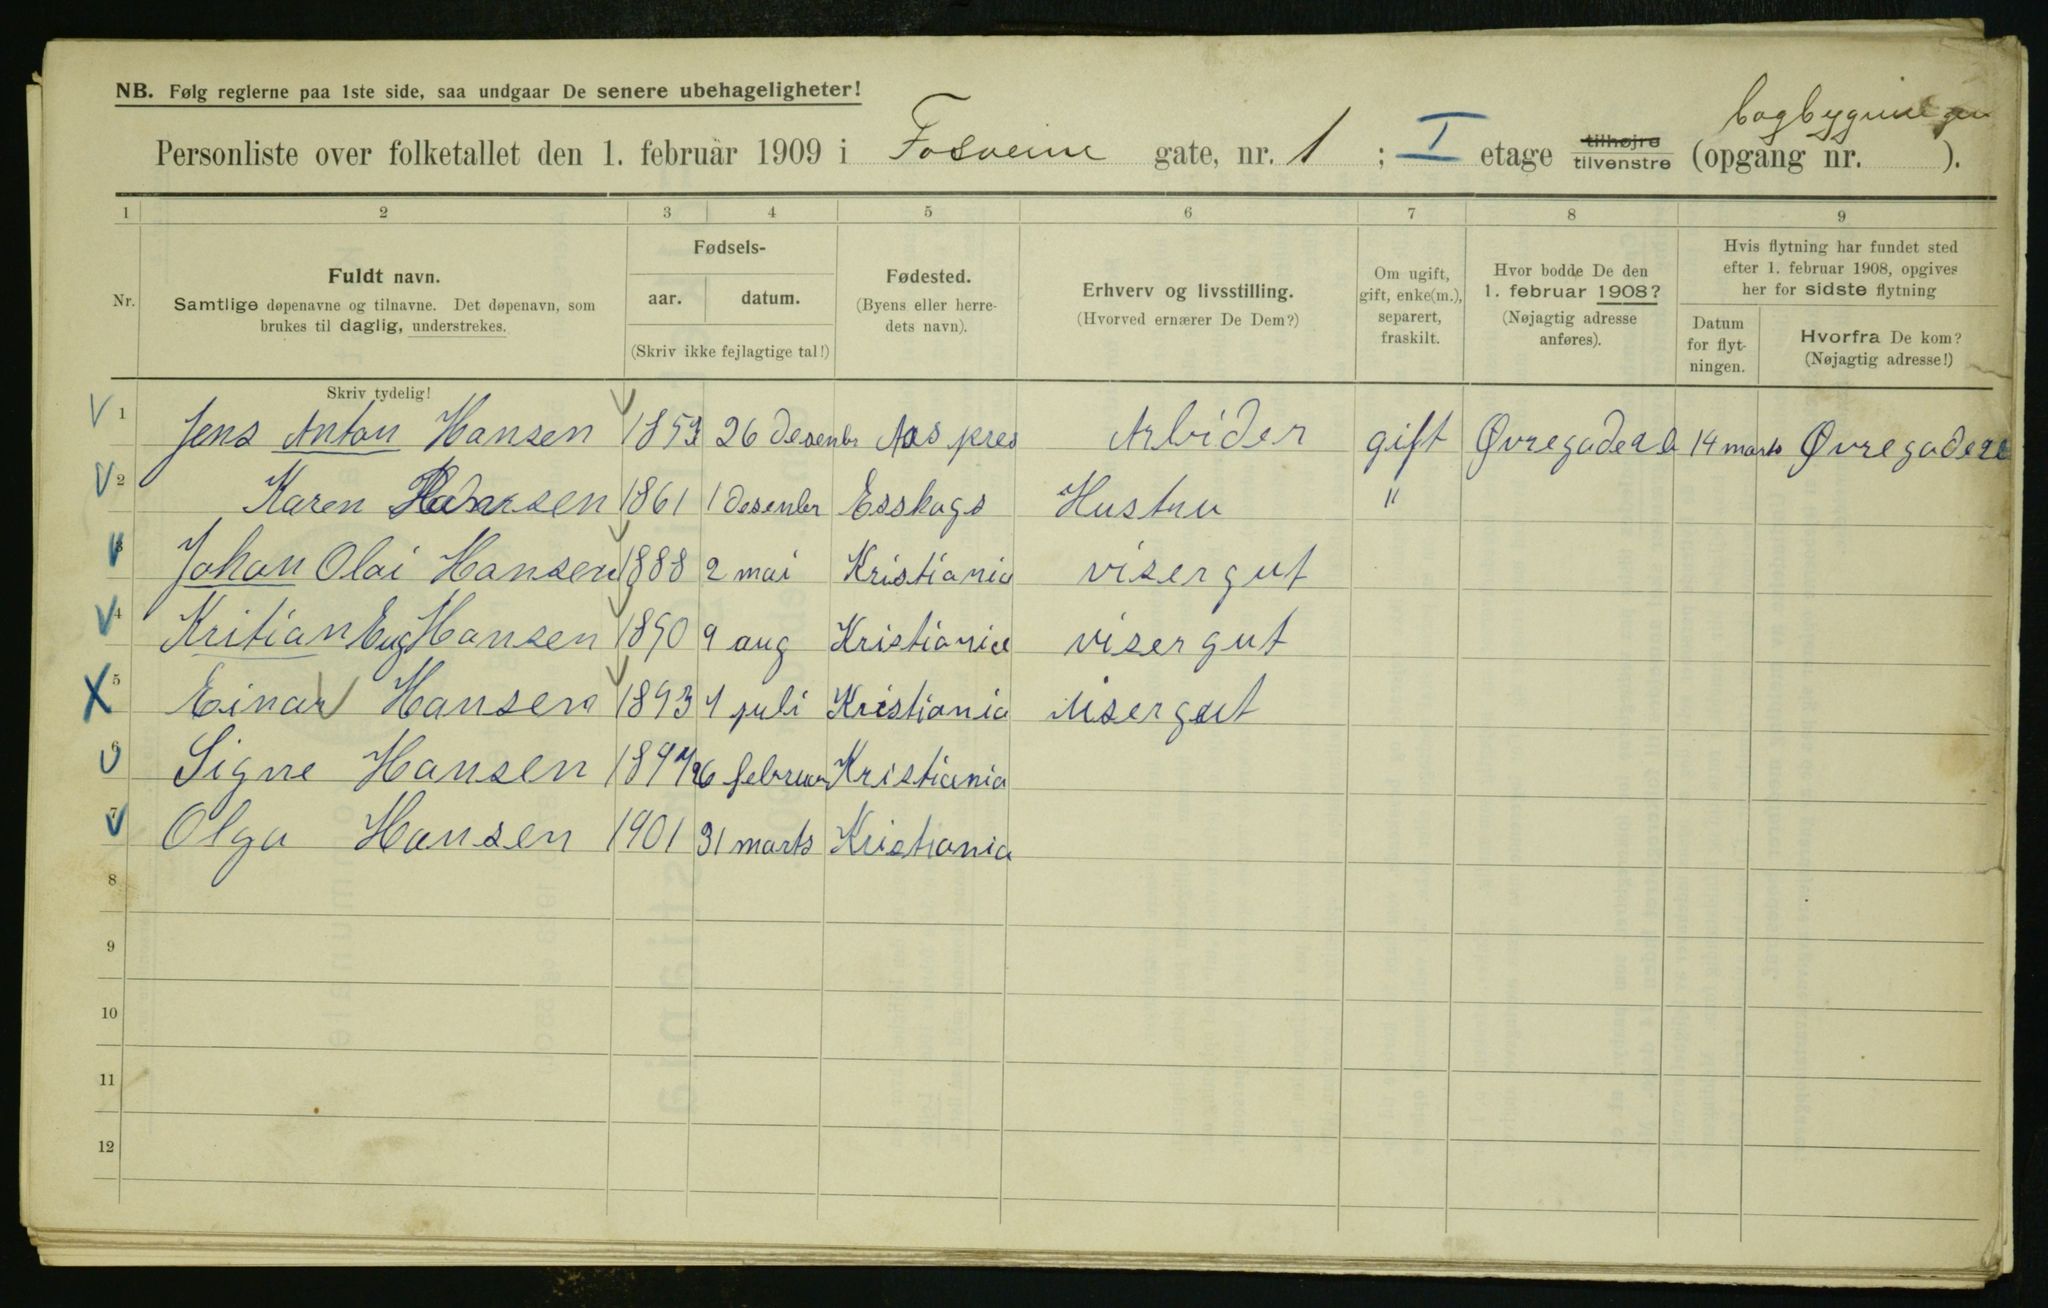 NB. Følg reglerne paa 1ste side, saa undgaar De senere ubehageligheter!
Personliste over folketallet den 1. februar 1909 i Fosveien gate, nr. 1 ; I etage tilhøjre tilvenstre (opgang nr. ).
1 2 3 4 5 6 7 8 9
Nr.
Fuldt navn.
Samtlige døpenavne og tilnavne. Det døpenavn, som
brukes til daglig, understrekes.
Fødsels-
aar. datum.
(Skriv ikke fejlagtige tal!)
Fødested.
(Byens eller herre-
dets navn).
Erhverv og livsstilling.
(Hvorved ernærer De Dem?)
Om ugift,
gift, enke(m.),
separert,
fraskilt.
Hvor bodde De den
1. februar 1908?
(Nøjagtig adresse
anføres).
Hvis flytning har fundet sted
efter 1. februar 1908, opgives
her for sidste flytning
Datum
for flyt-
ningen.
Hvorfra De kom?
(Nøjagtig adresse!)
Skriv tydelig!
1 Jens Anton Hansen 1853 26 desenbr Aas pres Arbider gift Øvregade 14 marts Øvregade
2 Karen Hansen 1861 1 desenbr Esskogs Hustru "
3 Johan Olai Hansen 1888 2 mai Kristiania visergut
4 Kritian Eug Hansen 1890 9 aug Kristiania visergut
5 Einar Hansen 1893 7 juli Kristiania visergut
6 Signe Hansen 1897 26 februar Kristiania
7 Olga Hansen 1901 31 marts Kristiania
8
9
10
11
12